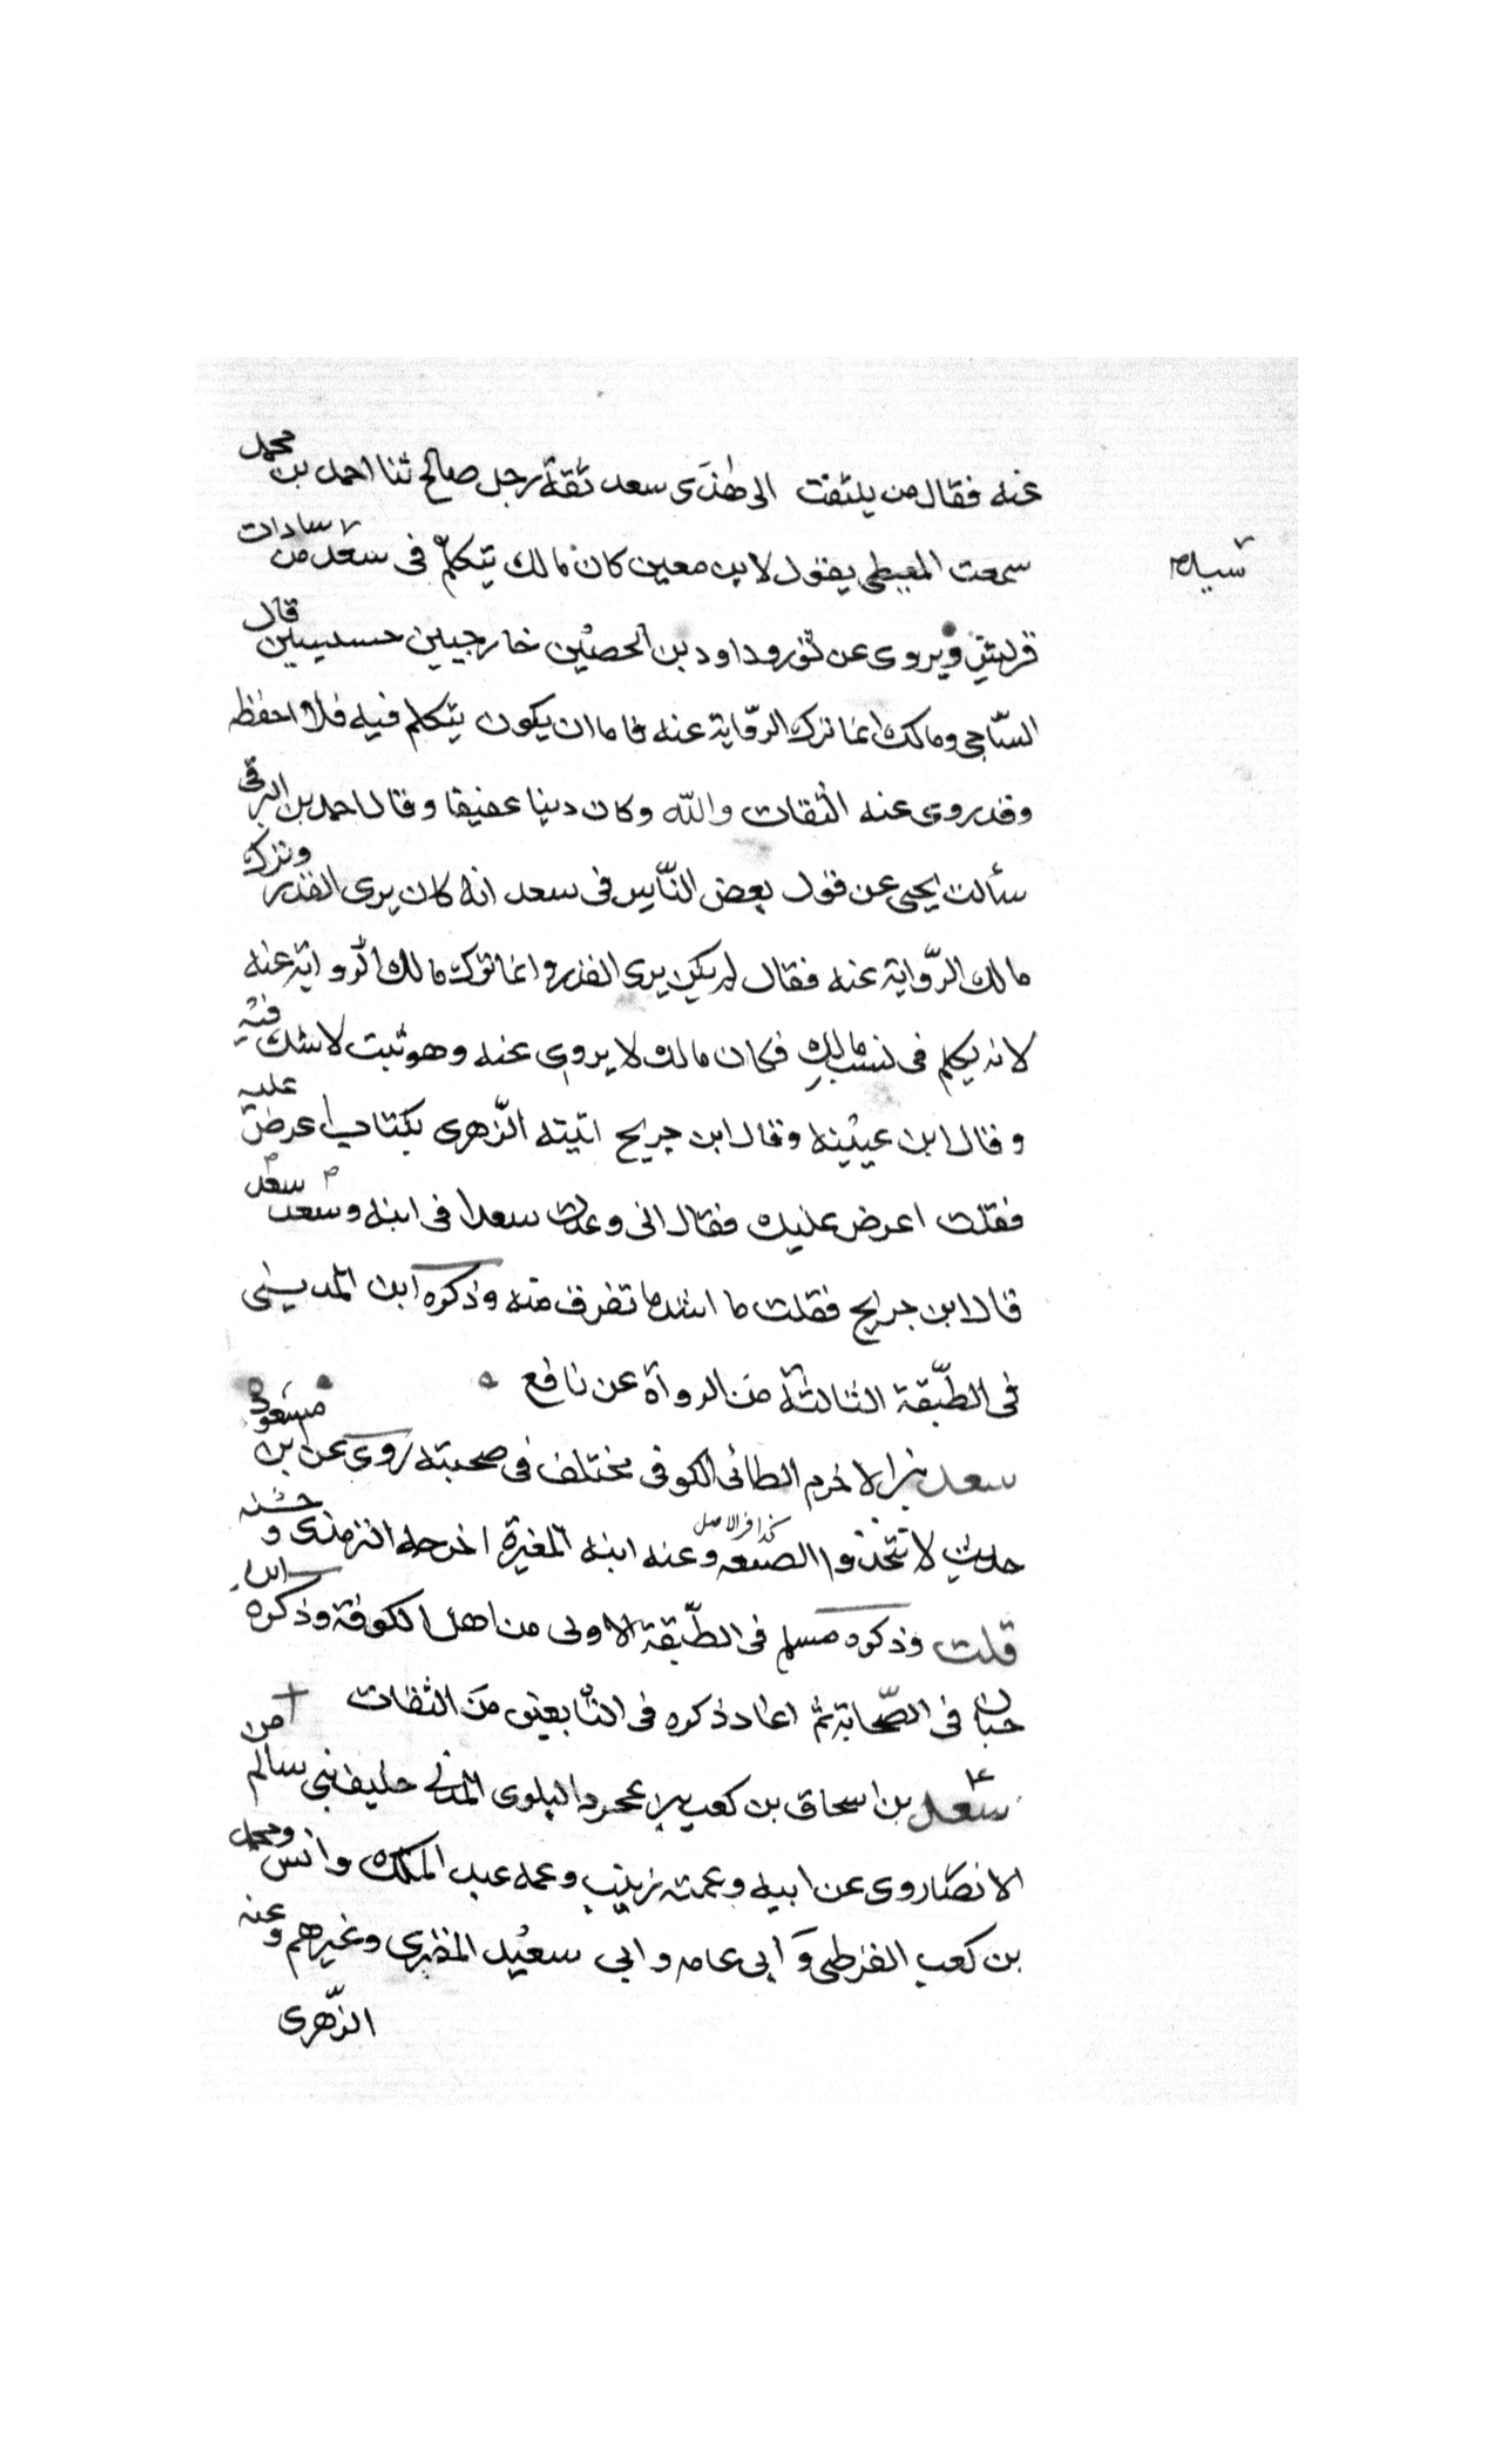 عنه فقال من يلتفت الى هذى سعد ثقة رجل صالح ثنا احمد بن محمد
سمعت المعيطى يقول لابن معين كان مالك يتكلم فى سعد من سادات
قريش ويروى عن ثور وداود بن الحصين خارجيين حسيبيين قال
الساجى ومالك انما ترك الرواية عنه فاما ان يكون يتكلم فيه فلا احفظه
وقد روى عنه الثقات والله وكان دينا عفيفا وقال احمد بن البرقى
سألت يحيى عن قول بعض الناس فى سعد انه كان يرى القدر وترك
مالك الرواية عنه فقال لم يكن يرى القدر وانما ترك مالك الرواية عنه
لانه تكلم فى نسب مالك فكان مالك لا يروى عنه وهو ثبت لا شك فيه
وقال ابن عيينه وقال ابن جريح اتيته الزهرى بكتاب اعرض عليه
فقلت اعرض عليك فقال انى وعدت سعدا فى ابنه وسعد سعد
قال ابن جريح فقلت ما اشد ما تفرق منه وذكره ابن المدينى
فى الطبقة الثالثة من الرواة عن نافع
سعد بن الاخرم الطائى الكوفى مختلف فى صحبته روى عن ابن مسعود
كذا فى الاصل
حديث لا تتخذوا الصنعه وعنه ابنه المغيرة اخرجه الترمذى وحسنه
قلت وذكره مسلم فى الطبقة الاولى من اهل الكوفة وذكره ابن
حبان فى الصحابة ثم اعاد ذكره فى التابعين من الثقات
سعد بن اسحاق بن كعب بن عجرة البلوى المدنى حليف بنى سالم من
الانصار روى عن ابيه وعمته زينب وعمه عبد الملك وانس ومحمد
بن كعب القرظى وابى عامه وابى سعيد المقبرى وغيرهم وعنه
الزهرى